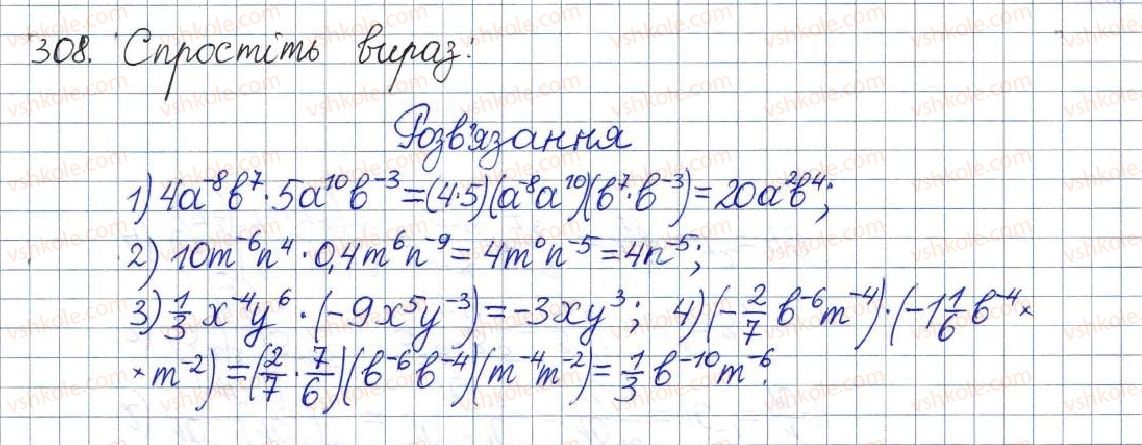 308. Спростіть вираз:
Розв'язання
1) 4a⁻⁸b⁷ · 5a¹⁰b⁻³ = (4·5)(a⁻⁸a¹⁰)(b⁷·b⁻³) = 20a²b⁴;
2) 10m⁻⁶n⁴ · 0,4m⁶n⁻⁹ = 4m⁰n⁻⁵ = 4n⁻⁵;
3) 1/3 x⁻⁴y⁶ · (-9x⁵y⁻³) = -3xy³; 4) (-2/7 b⁻⁶m⁻⁴) · (-1 1/6 b⁻⁴ ×
× m⁻²) = (2/7 · 7/6)(b⁻⁶b⁻⁴)(m⁻⁴m⁻²) = 1/3 b⁻¹⁰m⁻⁶.